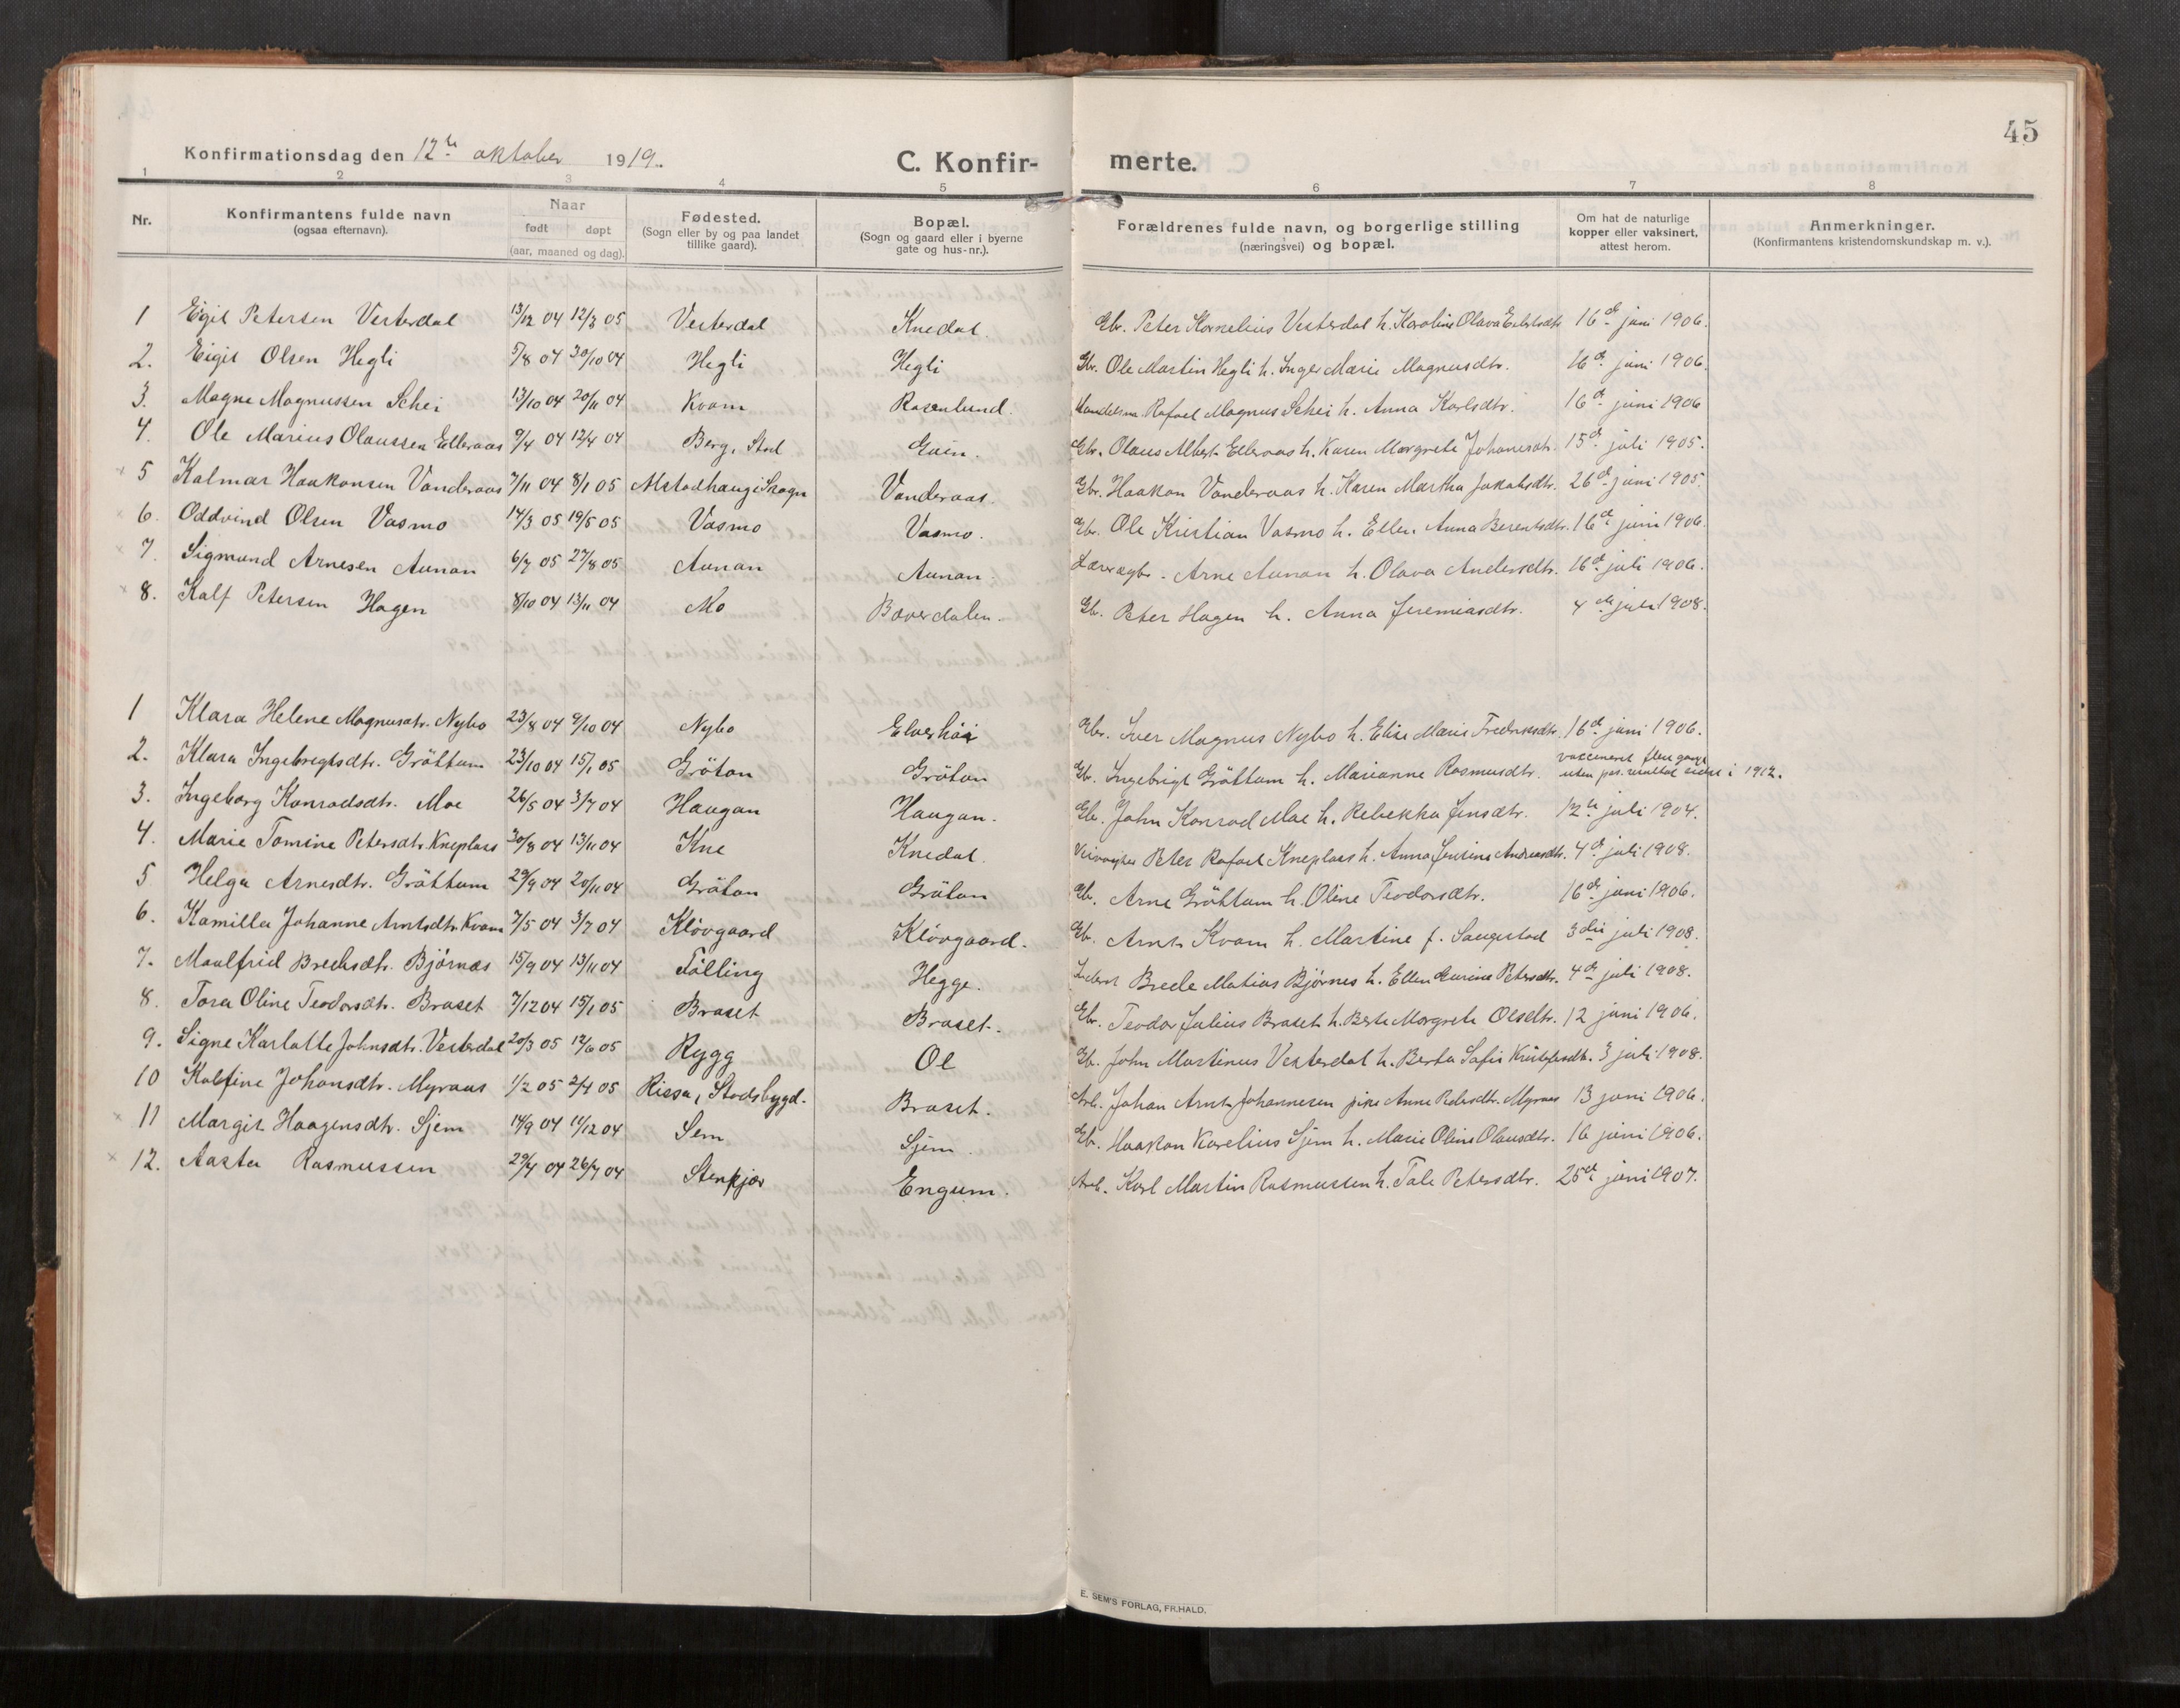 45
Konfirmationsdag den 12te oktober 1919.
C. Konfir- merte.
1 2 3 4 5 6 7 8
Nr. Konfirmantens fulde navn (ogsaa efternavn). Naar født døpt (aar, maaned og dag). Fødested. (Sogn eller by og paa landet tillike gaard). Bopæl. (Sogn og gaard eller i byerne gate og hus-nr.). Forældrenes fulde navn, og borgerlige stilling (næringsvei) og bopæl. Om hat de naturlige kopper eller vaksinert, attest herom. Anmerkninger. (Konfirmantens kristendomskundskap m. v.).
1 Eigil Petersen Vesterdal 13/12 04 12/3 05 Vesterdal Knedal. Gbr. Peter Kornelius Vesterdal h. Karoline Olava 16de juni 1906.
2. Eigil Olsen Hegli 5/8 04 30/10 04 Hegli Hegli Gbr. Ole Martin Hegli h. Inger Marie Magnusdtr. 16de juni 1906.
3. Magne Magnussen Schei 13/10 04 20/11 04 Kvam Rosenlund. Handelsm. Rafael Magnus Schei h. Anna Karlsdtr. 16de juni 1906
4. Ole Marius Olaussen Elleraas 9/4 04 12/4 04 Berg, Stod Gbr. Olaus Albert Elleraas h. Karen Margrete Johanesdtr. 15de juli 1905.
× 5 Kalmar Haakonsen Vanderaas 7/11 04 8/1 05 Alstadhaug i Skogn Vanderaas. Gbr. Haakon Vanderaas h. Karen Martha Jakobsdtr. 26de juni 1905.
× 6. Oddvind Olsen Vasmo 14/3 05 19/5 05 Vasmo Vasmo. Gbr. Ole Kristian Vasmo h. Ellen Anna Berentsdtr. 16de juni 1906.
× 7. Sigmund Arnesen Aunan 6/7 05 27/8 05 Aunan Aunan. Arne Aunan h. Olava Andersdtr. 16de juli 1906.
× 8. Kalf Petersen Hagen 8/10 04 13/11 04 Mo Baverdalen. Gb. Peter Hagen h. Anna Jeremiasdtr. 4de juli 1908.
1 Klara Helene Magnusdtr. Nybo 23/8 04 9/10 04 Nybo Elverhöi Gbr. Iver Magnus Nybo h. Elise Marie Fredriksdtr. 16de juni 1906.
2. Klara Ingebrigtsdtr. Gröttum 23/10 04 15/1 05 Grötan Grötan Gb. Ingebrigt Gröttum h. Marianne Rasmusdtr. vaccineret flere gange uten pos. resultat sidst i 1912.
3. Ingeborg Konradsdtr. Moe 26/5 04 3/7 04 Haugan Haugan. Gb. John Konrad Moe h. Rebekka Jensdtr. 12te juli 1904.
4. Marie Tomine Petersdtr. Kneplass 30/8 04 13/11 04 Kne Knedal. Peter Rafael Kneplass h. Anna Jensine Andreasdtr. 4de juli 1908.
5 Helga Arnesdtr. Gröttum 29/9 04 20/11 04 Grötan Grötan Gb. Arne Gröttum h. Oline Teodorsdtr. 16de juni 1906.
6. Kamilla Johanne Arntsdtr. Kvam 7/5 04 3/7 04 Klövgaard Klövgaard. Gb. Arnt Kvam h. Martine f. Saugestad 3die juli 1908.
7. Maalfrid Bredesdtr. Björnæs 15/9 04 13/11 04 Fölling Hegge. Brede Matias Bjørnes h. Ellen Petersdtr. 4de juli 1908.
8. Tora Oline Teodorsdtr. Braset 7/12 04 15/1 05 Braset Braset. Gbr. Teodor Julius Braset h. Berte Margrete Olsdtr. 12 juni 1906.
9. Signe Karlotte Johnsdtr. Vesterdal 20/3 05 12/6 05 Rygg Ol Gb. John Martinus Vesterdal h. Berta Sofie Kristofersdtr. 3 juli 1908.
10 Kolfine Johansdtr. Myraas 1/2 05 2/4 05 Rissa, Stadsbygd. Braset. Arb. Johan Arnt Johannesen pike Anne Pedersdtr. Myraas 13 juni 1906.
× 11 Margit Haagensdtr. Sjem 14/9 04 11/12 04 Sem Sjem. Gb. Haakon Karelius Sjem h. Marie Oline Olausdtr. 16 juni 1906.
× 12. Aasta Rasmussen 29/4 04 26/7 04 Stenkjær Engum. Arb. Karl Martin Rasmussen h. Tale Petersdtr. 25de juni 1907.
E. SEM'S FORLAG, FR.HALD.